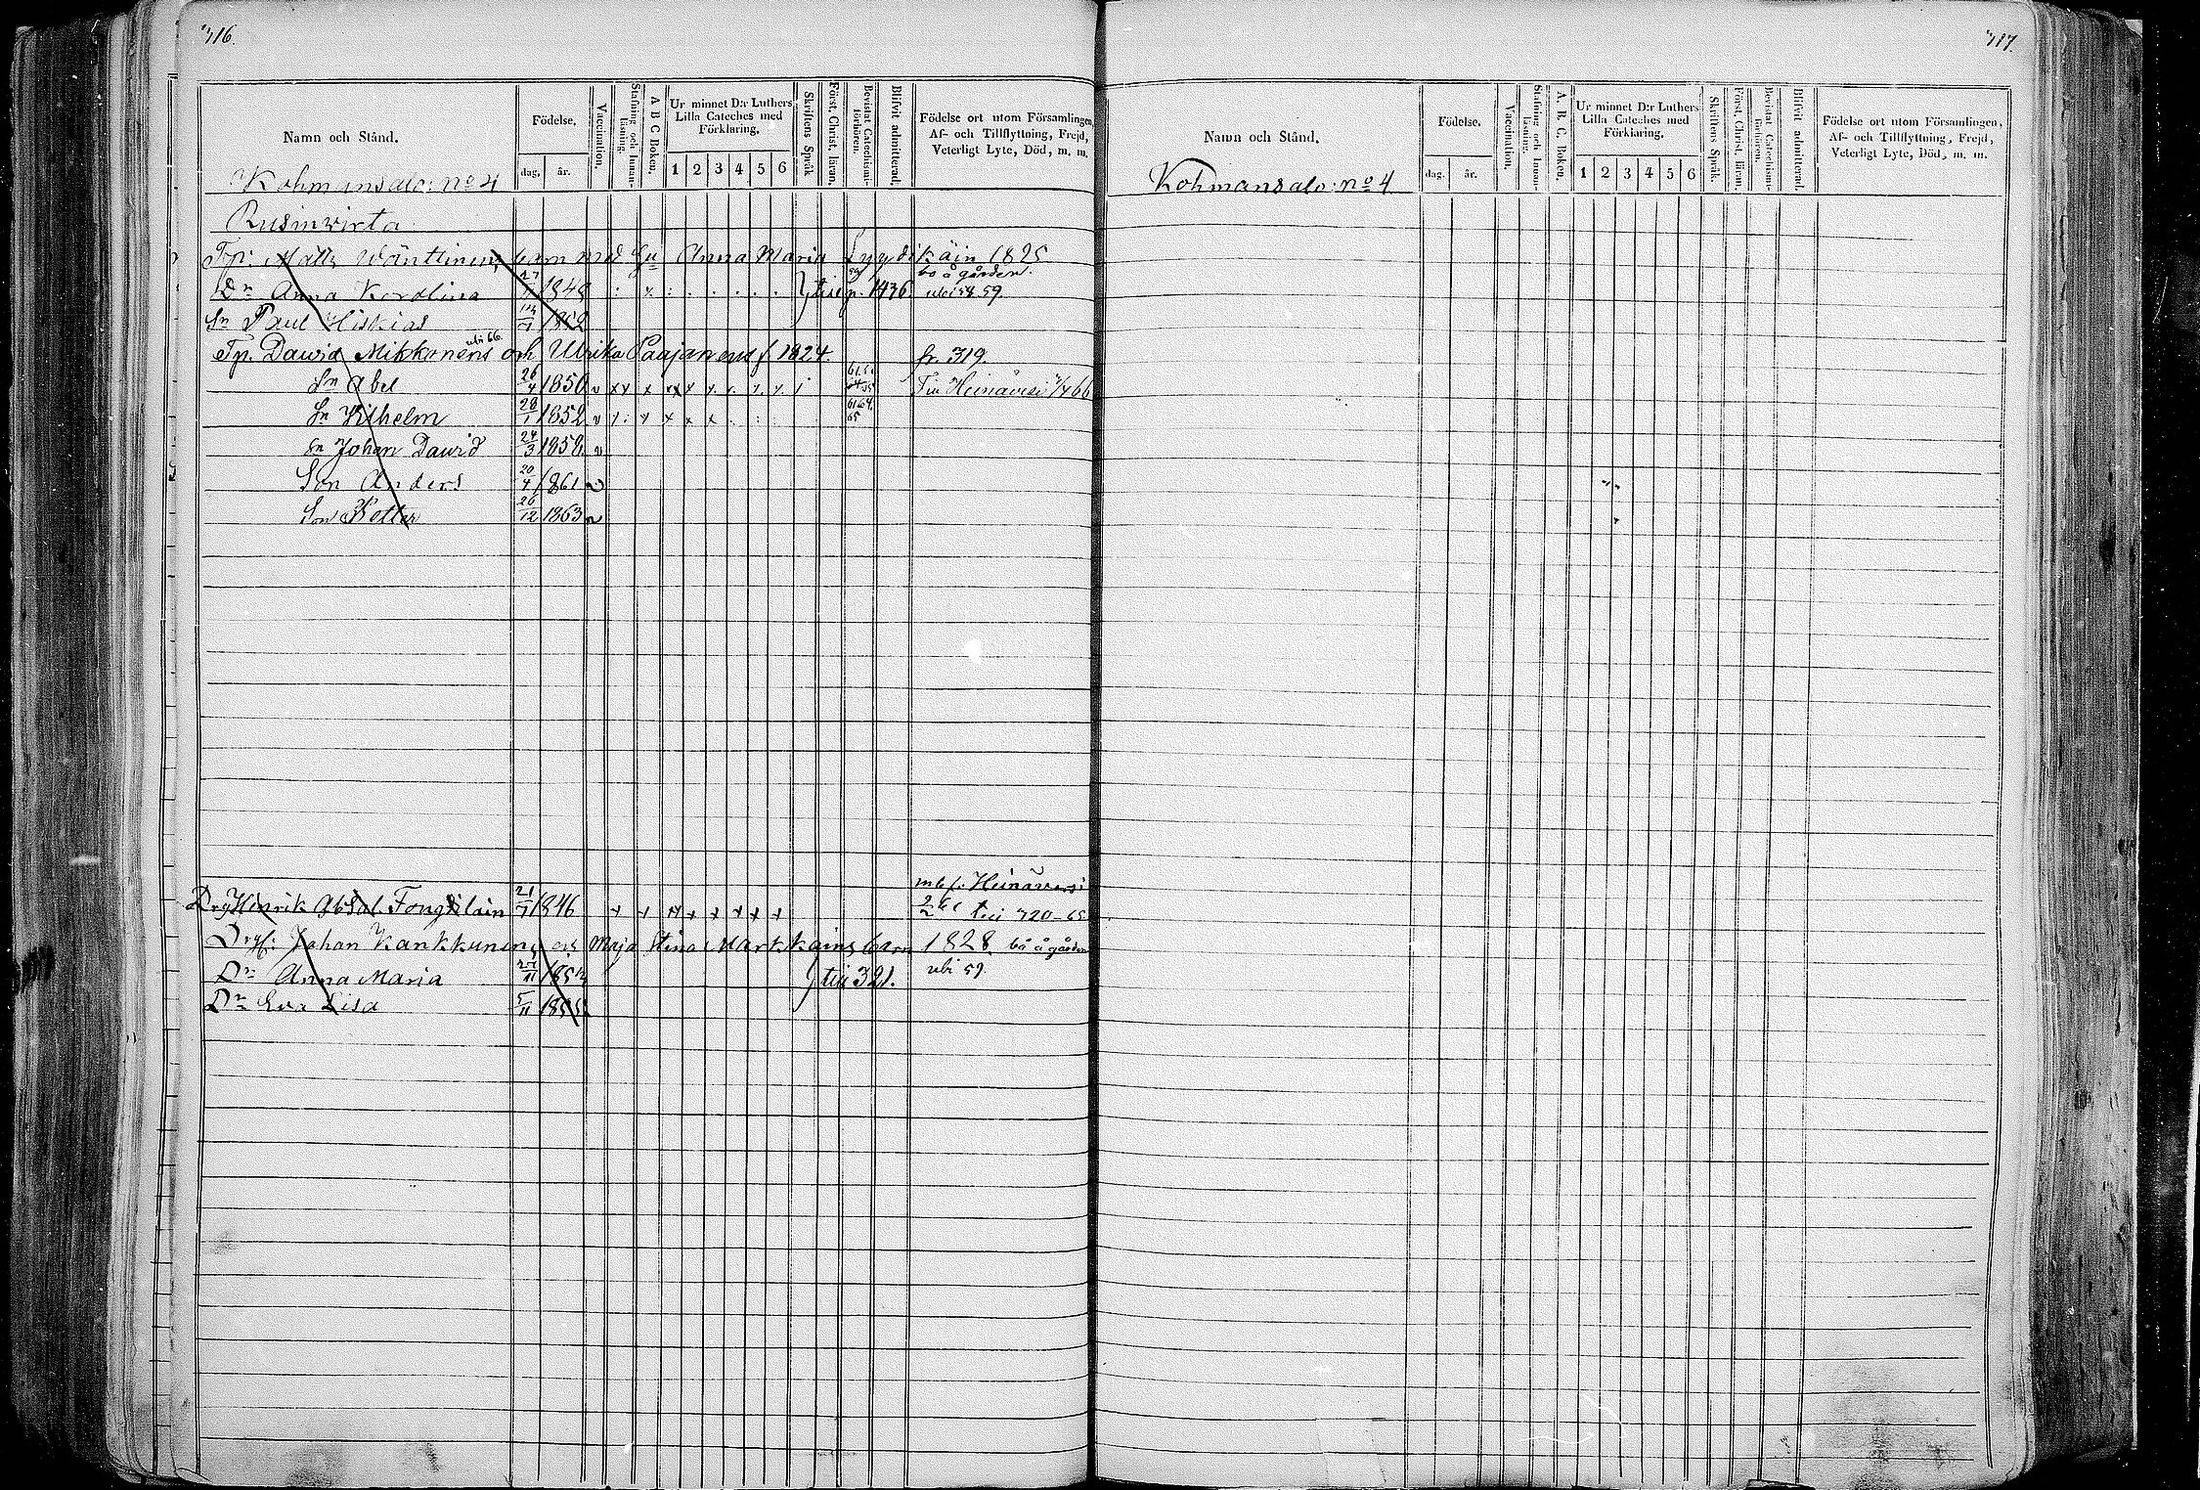 716.
Namn och Stånd.
Födelse.
dag. år.
Vaccination.
Stafning och Innan-läsning.
A B C Boken.
Ur minnet D:r Luthers
Lilla Cateches med
Förklaring.
1 2 3 4 5 6
Skriftens Språk
Först. Christ. läran.
Bevistat Catechismi-förhören.
Blifvit admitterad.
Födelse ort utom Församlingen,
Af- och Tillflyttning, Frejd,
Veterligt Lyte, Död, m. m.
Kohmansalo: No 4
Rusinwirta
Matts Wänttinens barn med Hu Anna Maria Lyydikäin 1825
Dr Anna Karolina 1848 till p. 1436. bo å gården. ubi 58. 59.
Sn Paul Hiskias
Tp. Dawid Mikkonens ubi 66. och Ulrika Paajanens f. 1824. fr. 319.
Sn Abel 26/4 1850 Till Heinävesi 66
Sn Wilhelm 28/1 1852 61.64. 65
Sn Johan Dawid 24/3 1858
Son Anders 20/4 1861
Son Petter 26/12 1863
Henrik Absal. Fougstlain 21/7 1846 Heinävesi till 720-65
Johan Kankkunens Maja Stina Markkains barn 1828 bo å gården
Dr Anna Maria till 321. ubi 59
Dr Eva Lisa 5/11
717.
Namn och Stånd.
Födelse.
dag. år.
Vaccination.
Stafning och Innan-läsning.
A. B. C. Boken.
Ur minnet D:r Luthers
Lilla Cateches med
Förklaring.
1 2 3 4 5 6
Skriftens Språk.
Först. Christ. läran.
Bevistat Catechismi-förhören.
Blifvit admitterad.
Födelse ort utom Församlingen,
Af- och Tillflyttning, Frejd,
Veterligt Lyte, Död, m. m.
Kohmansalo: No 4